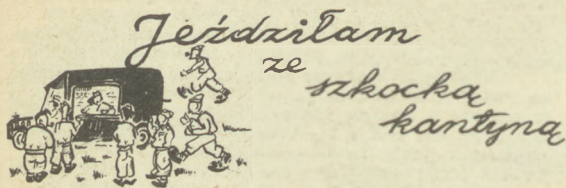 Jeździłam
ze
szkocką
kantyną